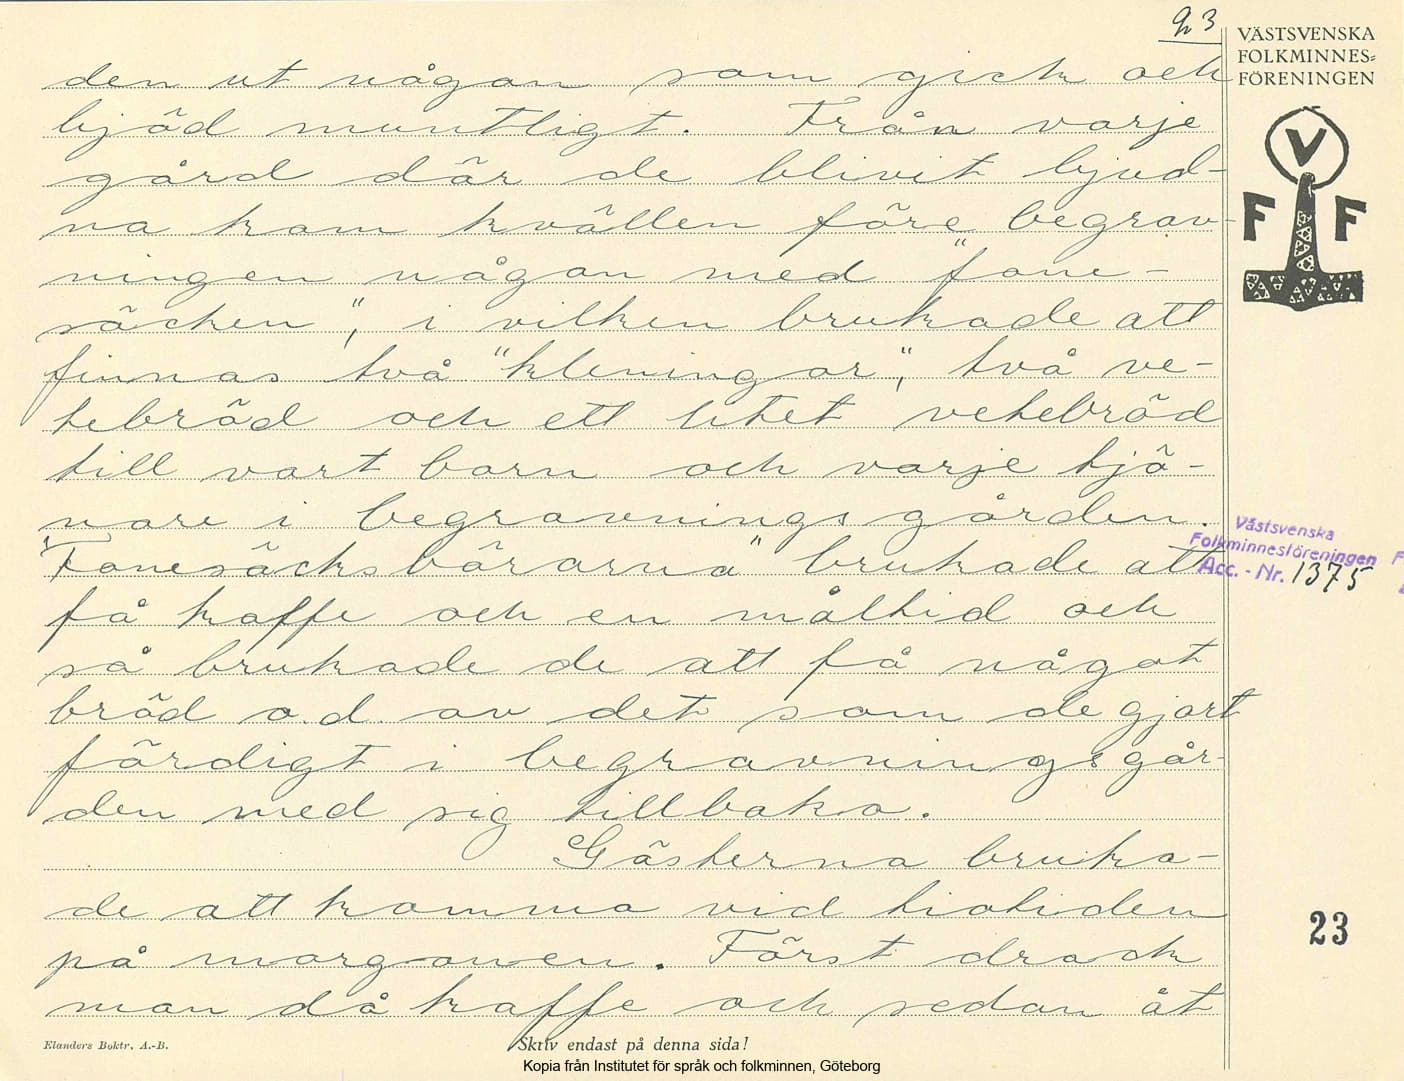 23
VÄSTSVENSKA
FOLKMINNES=
FÖRENINGEN
V
F F
den ut någon som gick och
bjöd muntligt. Från varje
gård där de blivit bjud-
na kom kvällen före begrav-
ningen någon med "fone-
säcken", i vilken brukade att
finnas två "kleningar", två ve-
tebröd och ett litet vetebröd
till vart barn och varje tjä-
nare i begravningsgården.
"Fonesäcksbärarna" brukade att
få kaffe och en måltid och
så brukade de att få något
bröd o.d. av det som de gjort
färdigt i begravningsgår-
den med sig tillbaka.
Gästerna bruka-
de att komma vid tiotiden
på morgonen. Först drack
man då kaffe och sedan åt
Västsvenska
Folkminnesföreningen
Acc. - Nr. 1375
23
Elanders Boktr. A.-B.
Skriv endast på denna sida!
Kopia från Institutet för språk och folkminnen, Göteborg